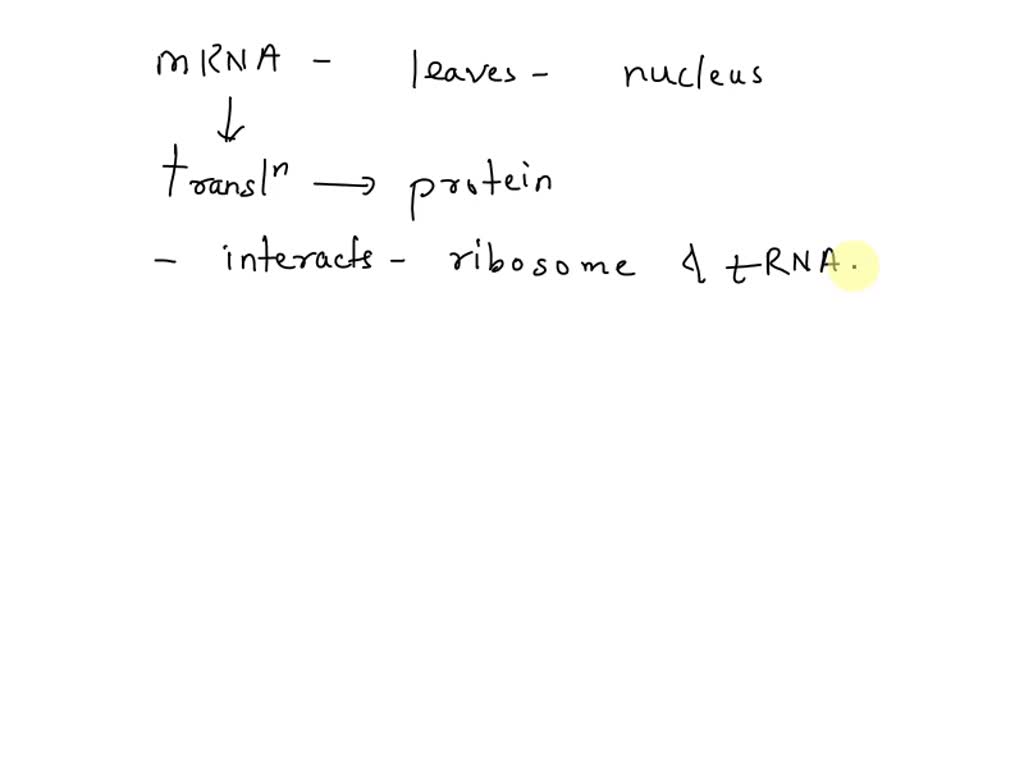 mRNA - leaves - nucleus
↓
translⁿ → protein
- interacts - ribosome & tRNA.